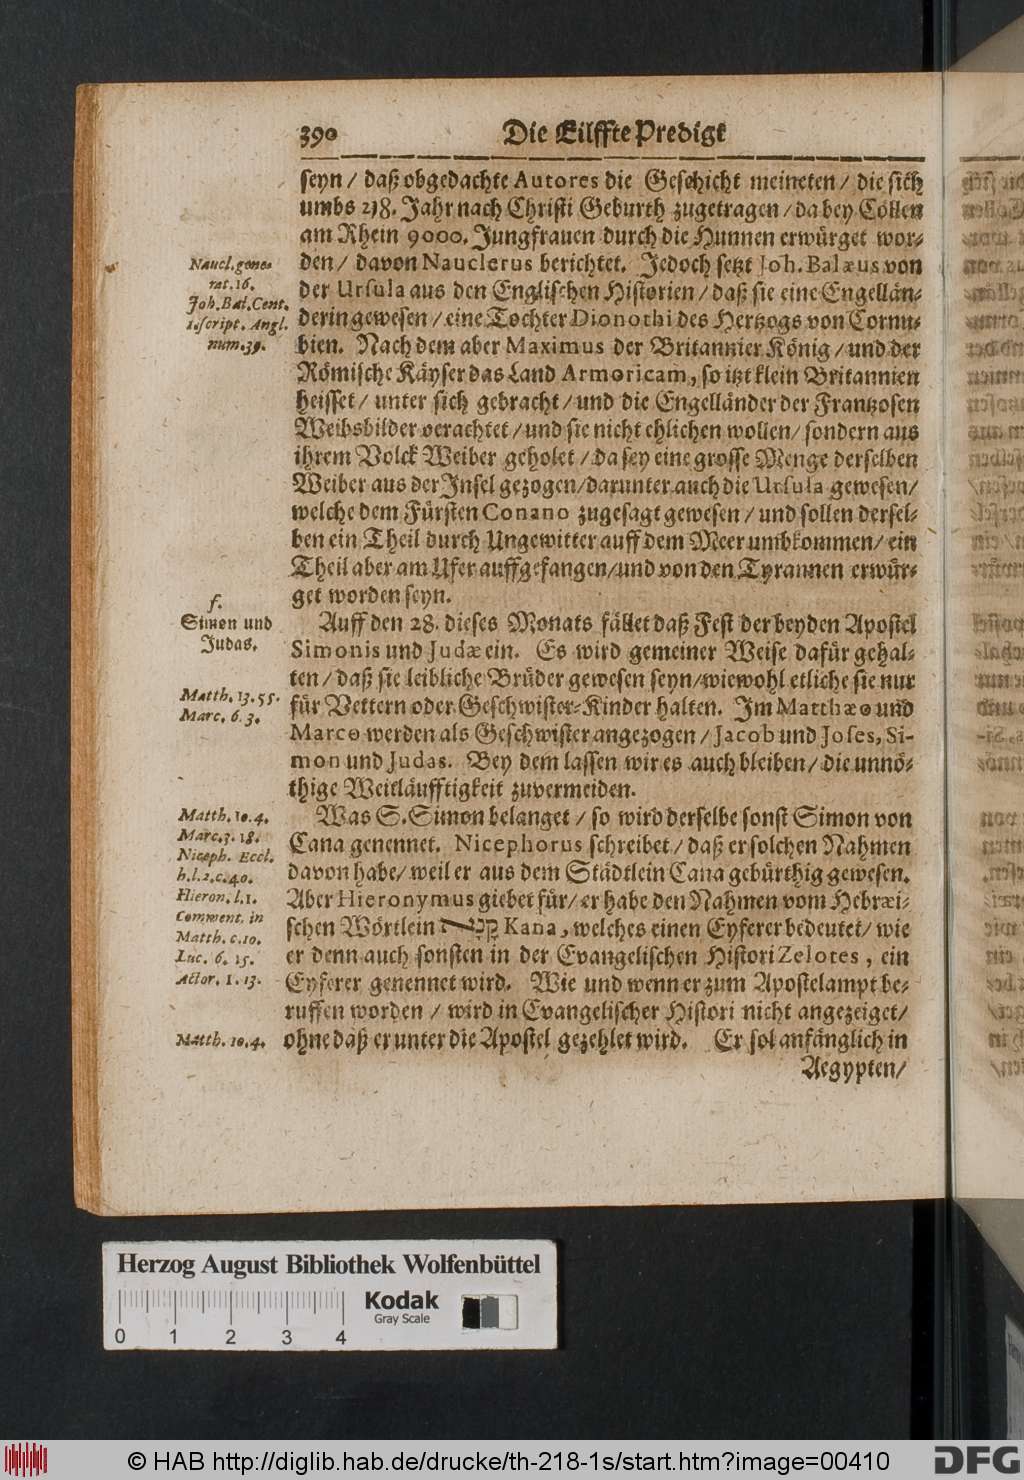 390 Die Eilffte Predigt
seyn / daß obgedachte Autores die Geschicht meineten / die sich
umbs 238. Jahr nach Christi Geburth zugetragen / da bey Cöllen
am Rhein 9000. Jungfrauen durch die Hunnen erwürget wor-
den / davon Nauclerus berichtet. Jedoch setzt Joh. Balæus von
der Ursula aus den Englischen Historien / daß sie eine Engellän-
derin gewesen / eine Tochter Dionothi des Hertzogs von Cornu-
bien. Nach dem aber Maximus der Britannier König / und der
Römische Käyser das Land Armoricam, so itzt klein Britannien
heisset / unter sich gebracht / und die Engelländer der Frantzosen
Weibsbilder verachtet / und sie nicht ehlichen wollen / sondern aus
ihrem Volck Weiber geholet / da sey eine grosse Menge derselben
Weiber aus der Insel gezogen / darunter auch die Ursula gewesen /
welche dem Fürsten Conano zugesagt gewesen / und sollen dersel-
ben ein Theil durch Ungewitter auff dem Meer umbkommen / ein
Theil aber am Ufer auffgefangen / und von den Tyrannen erwür-
get worden seyn.
Naucl. gene-
rat. 16.
Joh. Bal. Cent.
1. script. Angl.
num. 39.
Auff den 28. dieses Monats fället daß Fest der beyden Apostel
Simonis und Judæ ein. Es wird gemeiner Weise dafür gehal-
ten / daß sie leibliche Brüder gewesen seyn / wiewohl etliche sie nur
für Vettern oder Geschwister-Kinder halten. Im Matthæo und
Marco werden als Geschwister angezogen / Jacob und Joses, Si-
mon und Judas. Bey dem lassen wir es auch bleiben / die unnö-
thige Weitläufftigkeit zuvermeiden.
f.
Simon und
Judas.
Matth. 13. 55.
Marc. 6. 3.
Was S. Simon belanget / so wird derselbe sonst Simon von
Cana genennet. Nicephorus schreibet / daß er solchen Nahmen
davon habe / weil er aus dem Städtlein Cana gebürthig gewesen.
Aber Hieronymus giebet für / er habe den Nahmen vom Hebræi-
schen Wörtlein Kana, welches einen Eyferer bedeutet / wie
er denn auch sonsten in der Evangelischen Histori Zelotes, ein
Eyferer genennet wird. Wie und wenn er zum Apostelampt be-
ruffen worden / wird in Evangelischer Histori nicht angezeiget /
ohne daß er unter die Apostel gezehlet wird. Er sol anfänglich in
Aegypten /
Matth. 10. 4.
Marc. 3. 18.
Niceph. Eccl.
h. l. 2. c. 40.
Hieron. l. 1.
Comment. in
Matth. c. 10.
Luc. 6. 15.
Actor. 1. 13.
Matth. 10. 4.
Herzog August Bibliothek Wolfenbüttel
Kodak
Gray Scale
0 1 2 3 4
© HAB http://diglib.hab.de/drucke/th-218-1s/start.htm?image=00410
DFG